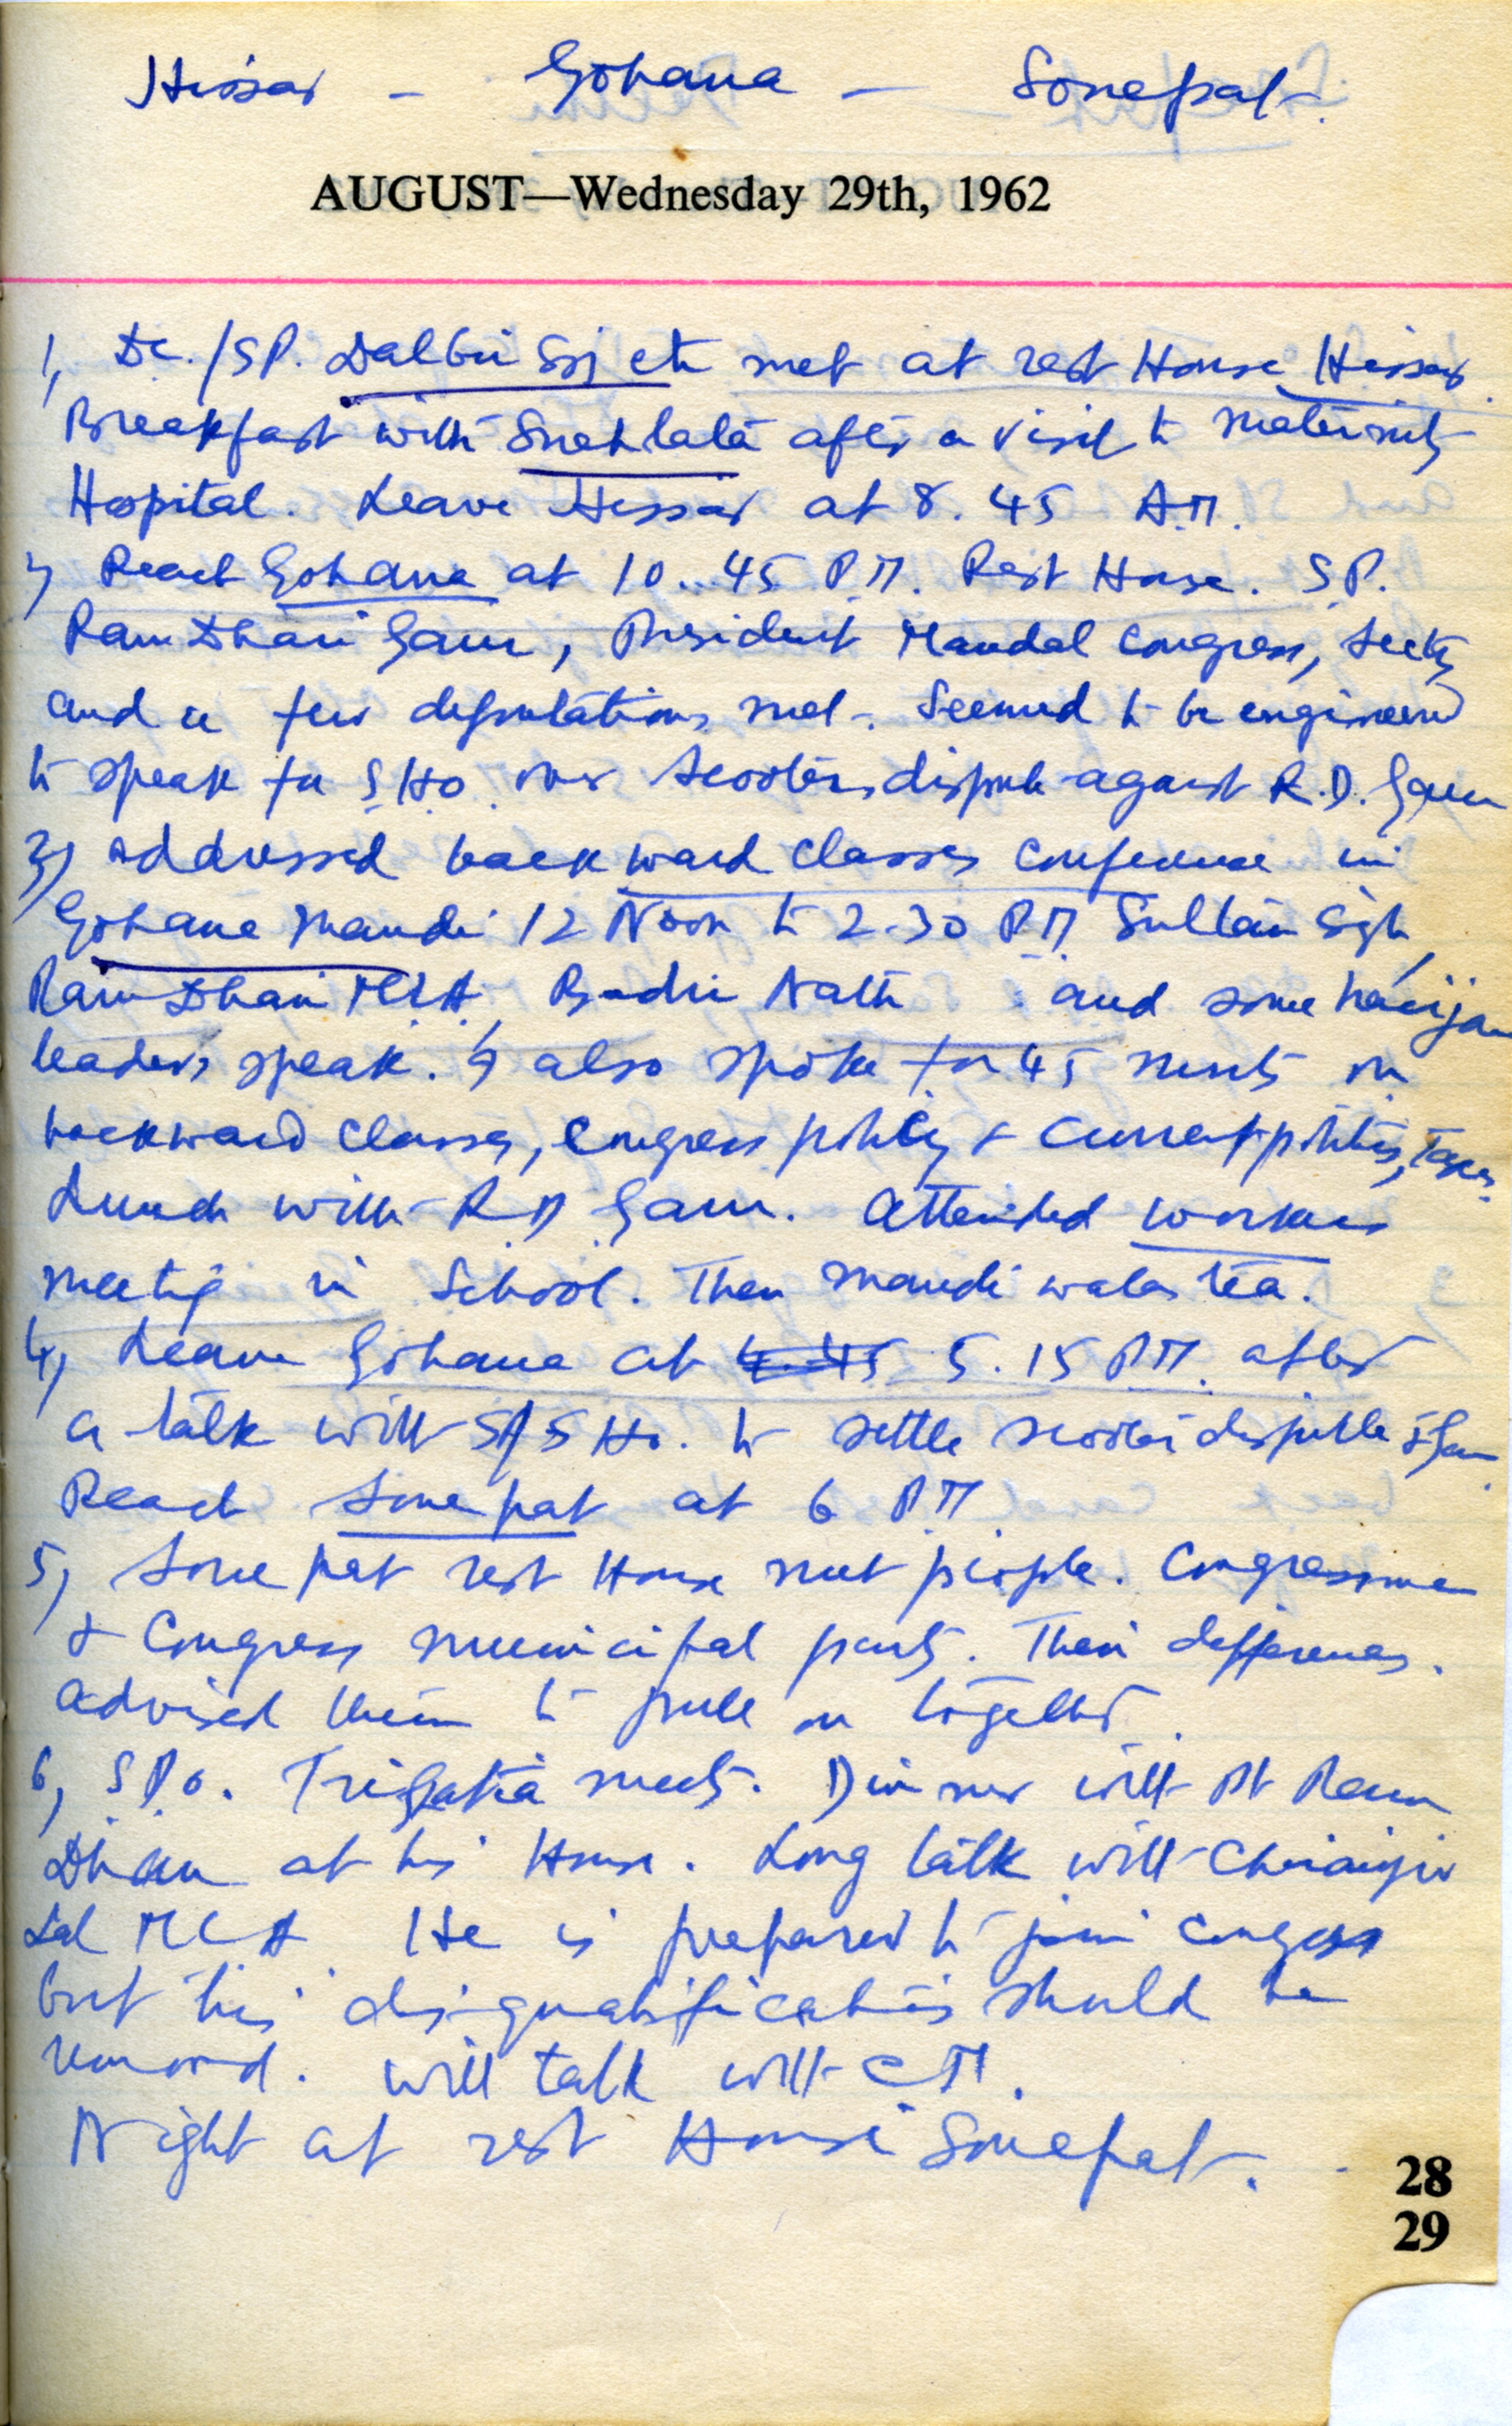 Hissar - Gohana - Sonepat.
AUGUST—Wednesday 29th, 1962
1, Dc./SP. Dalbir Sgj etc met at rest House Hissar.
Breakfast with Snehlata after a visit to maternity
Hospital. Leave Hissar at 8.45 A.M.
2, Reach Gohana at 10.45 P.M. Rest House. S.P.
Ram Dhari Gaur, President Mandal Congress, Secty
and a few deputations met. Seemed to be engineered
to speak for S.H.O. over scooters dispute against R.D. Gaur
3, Addressed backward classes conference in
Gohana mandi 12 Noon to 2.30 P.M Sultan Sigh,
Ram Dhari M.L.A, Badri Nath and some harijan
leaders speak. I also spoke for 45 minuts on
backward classes, Congress policy & current politics, Taxes.
Lunch with R D Gaur. Attended workers
meetig in School. Then mandi walas tea.
4, Leave Gohana at 4.45 5.15 P.M. after
a talk with SHO. to settle scooter dispute
Reach Sonepat at 6 P.M.
5, Sonepat rest House meet people. Congressmen
& Congress municipal party. Their differences.
Advised them to pull on together.
6, S.D.O. meets. Dinner with Pt Ram
Dhan at his House. Long talk with Chiranjiv
Lal MLA He is prepared to join Congess
but his disqualification should be
removed. Will talk with CM.
Night at rest House Sonepat.
28
29